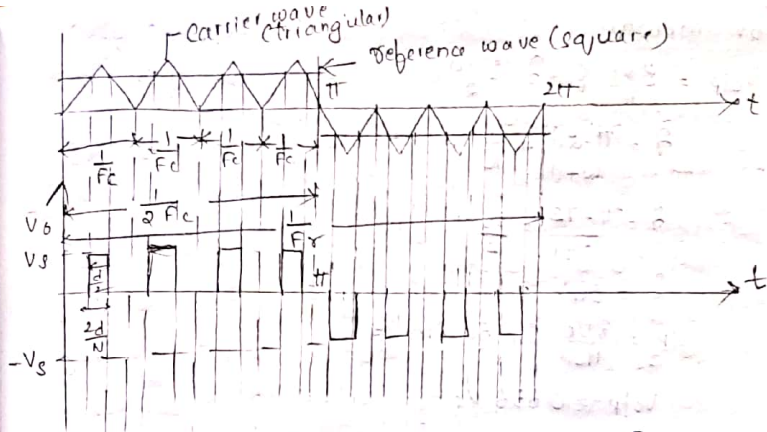 Carrier wave
(triangular)
reference wave (square)
π
2π
t
1/Fc
1/Fc
1/Fc
1/Fc
1/2Fc
1/Fr
Vo
Vs
π
t
d/2
2d/N
-Vs